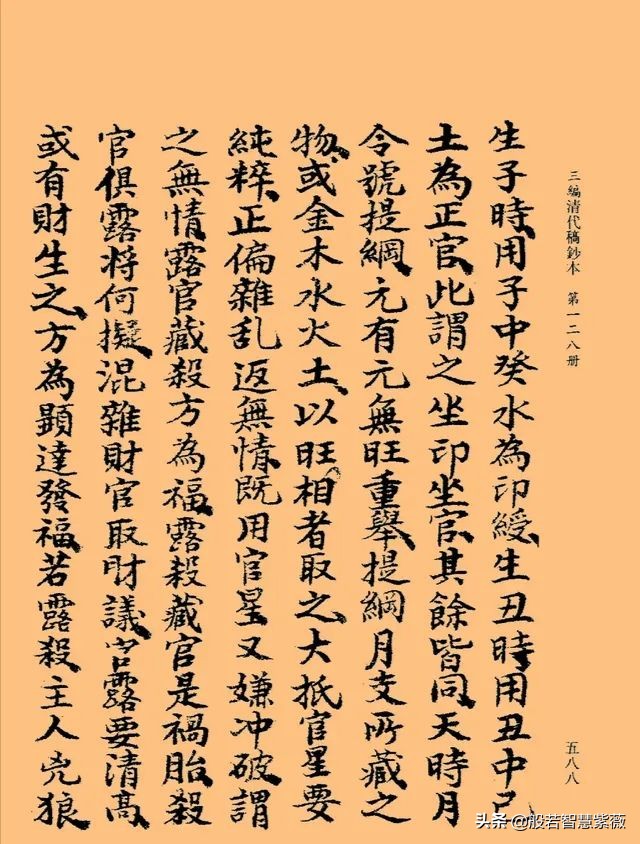 三編清代稿鈔本　第一二八册
五八八
生子時用子中癸水為印綬生丑時用丑中己
土為正官此謂之坐印坐官其餘皆同天時月
令號提綱元有元無旺重舉提綱月支所藏之
物或金木水火土以旺相者取之大抵官星要
純粹正偏雜乱返無情既用官星又嫌冲破謂
之無情露官藏殺方為福露殺藏官是禍胎殺
官俱露将何擬混雜財官取財議官露要清髙
或有財生之方為顕達發福若露殺主人兇狼
头条@般若智慧紫薇